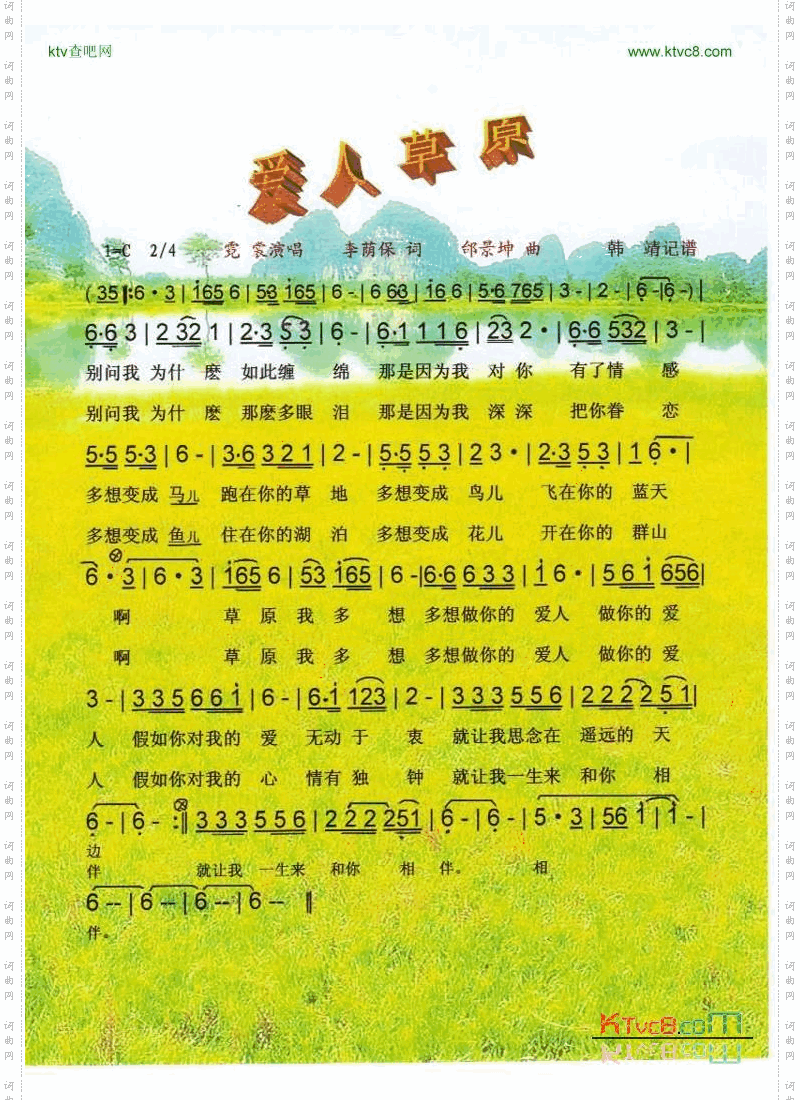 ktv查吧网 www.ktvc8.com
爱人草原
1=C 2/4 霓裳演唱 李荫保 词 邰景坤 曲 韩 靖记谱
(35‖:6·3|1656|53·3 165|6-|663|1666|5·6765|3-|2-|6-|6-)|
6·63|2321|2·353|6-|6·1116|232·|6·6532|3-|
别问我 为什 麽 如此缠 绵 那是因为我 对你 有了情 感
别问我 为什 麽 那麽多眼 泪 那是因为我 深深 把你眷 恋
5·55·3|6-|3·6321|2-|5·553|23·|2·353|16·|
多想变成 马儿 跑在你的草 地 多想变成 鸟儿 飞在你的 蓝天
多想变成 鱼儿 住在你的湖 泊 多想变成 花儿 开在你的 群山
6·3|6·3|1656|53165|6-|6·6633|16·|561656|
啊 草 原 我 多 想 多想做你的 爱人 做你的 爱
啊 草 原 我 多 想 多想做你的 爱人 做你的 爱
3-|335661|6-|6·1123|2-|333556|222251|
人 假如你对我的 爱 无动 于 衷 就让我思念在 遥远的 天
人 假如你对我的 心 情有 独 钟 就让我一生来 和你 相
6-|6-:‖333556|222251|6-|6-|5·3|561|1-|
边
伴 就让我 一生来 和你 相 伴。 相
6--|6--|6--|6--‖
伴。
KTvc8.com
词曲网